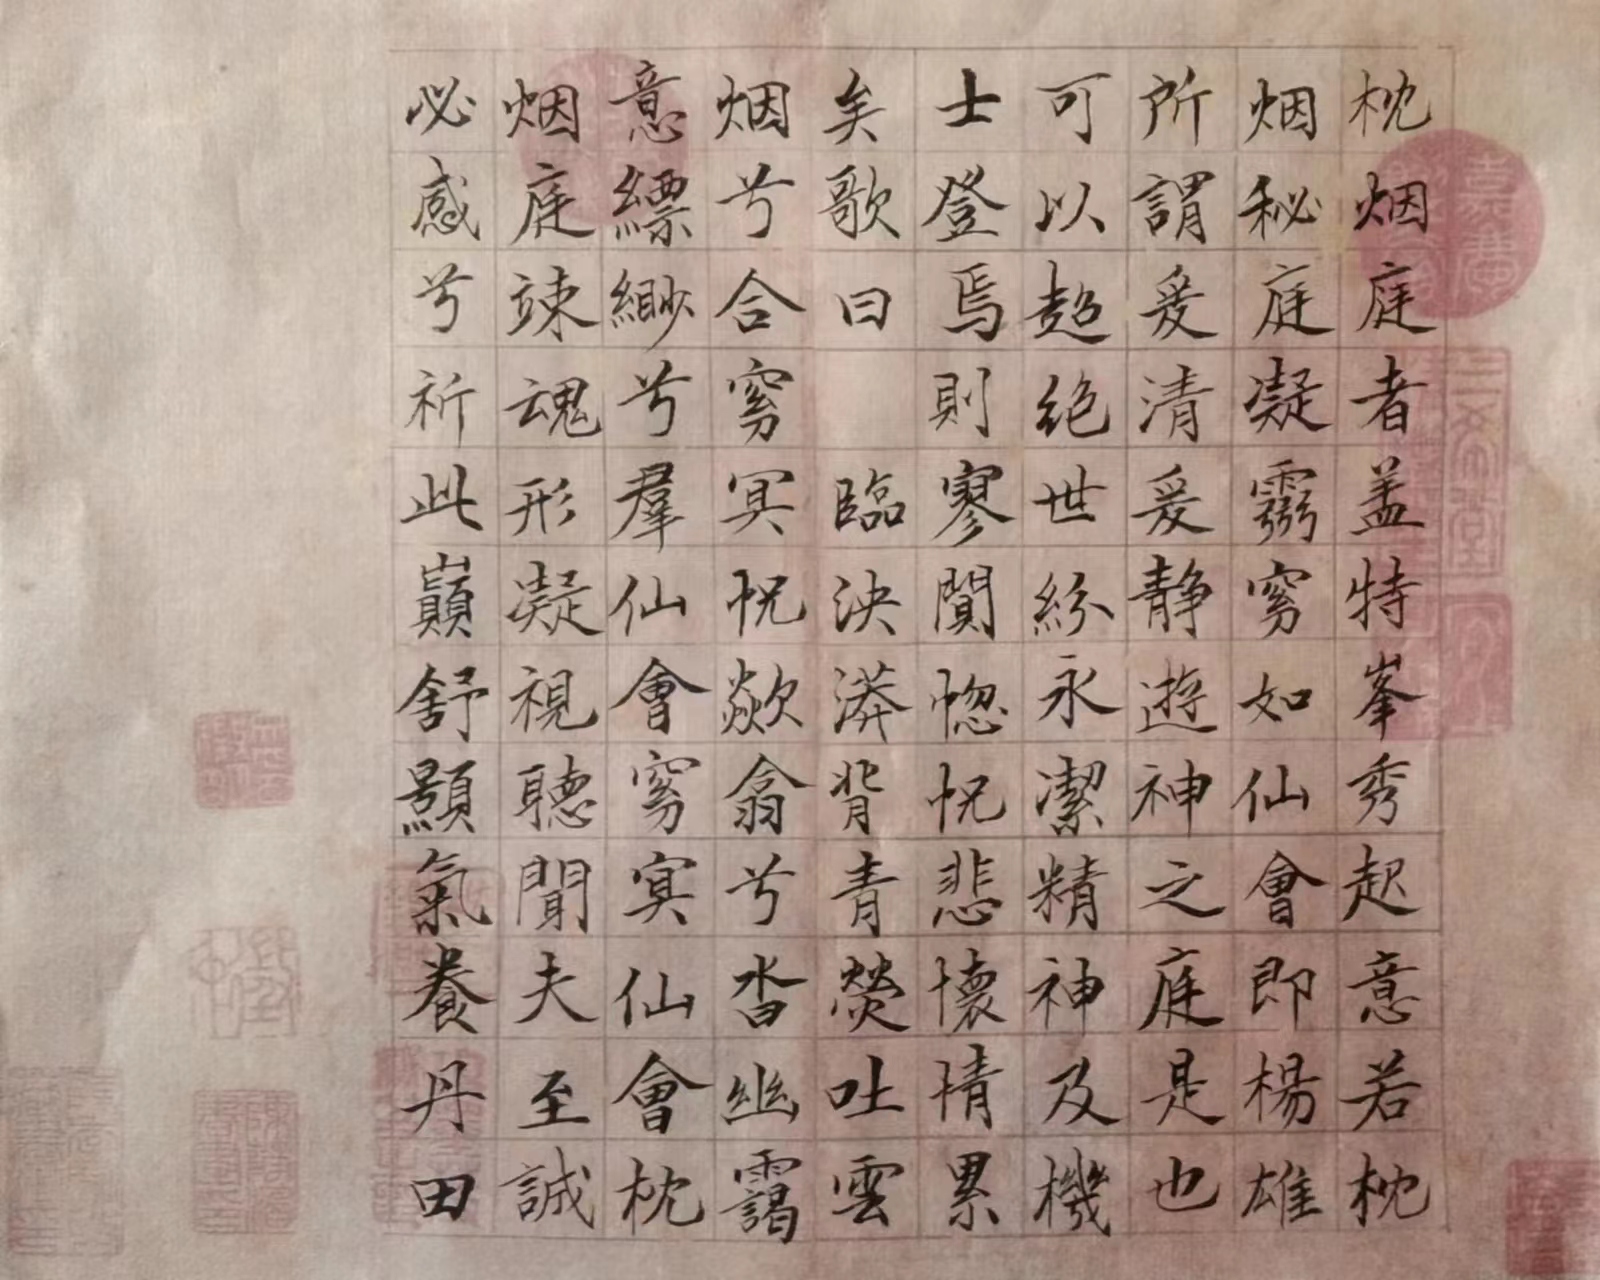 枕烟庭者盖特峯秀起意若枕
烟秘庭凝霛窅如仙會即楊雄
所謂爰清爰静遊神之庭是也
可以超絶世紛永潔精神及機
士登焉則寥闃惚怳悲懷情累
矣歌曰 臨泱漭背青熒吐雲
烟兮合窅冥怳歘翕兮沓幽靄
意縹緲兮羣仙會窅冥仙會枕
烟庭竦魂形凝視聽聞夫至誠
必感兮祈此巔舒顥氣養丹田